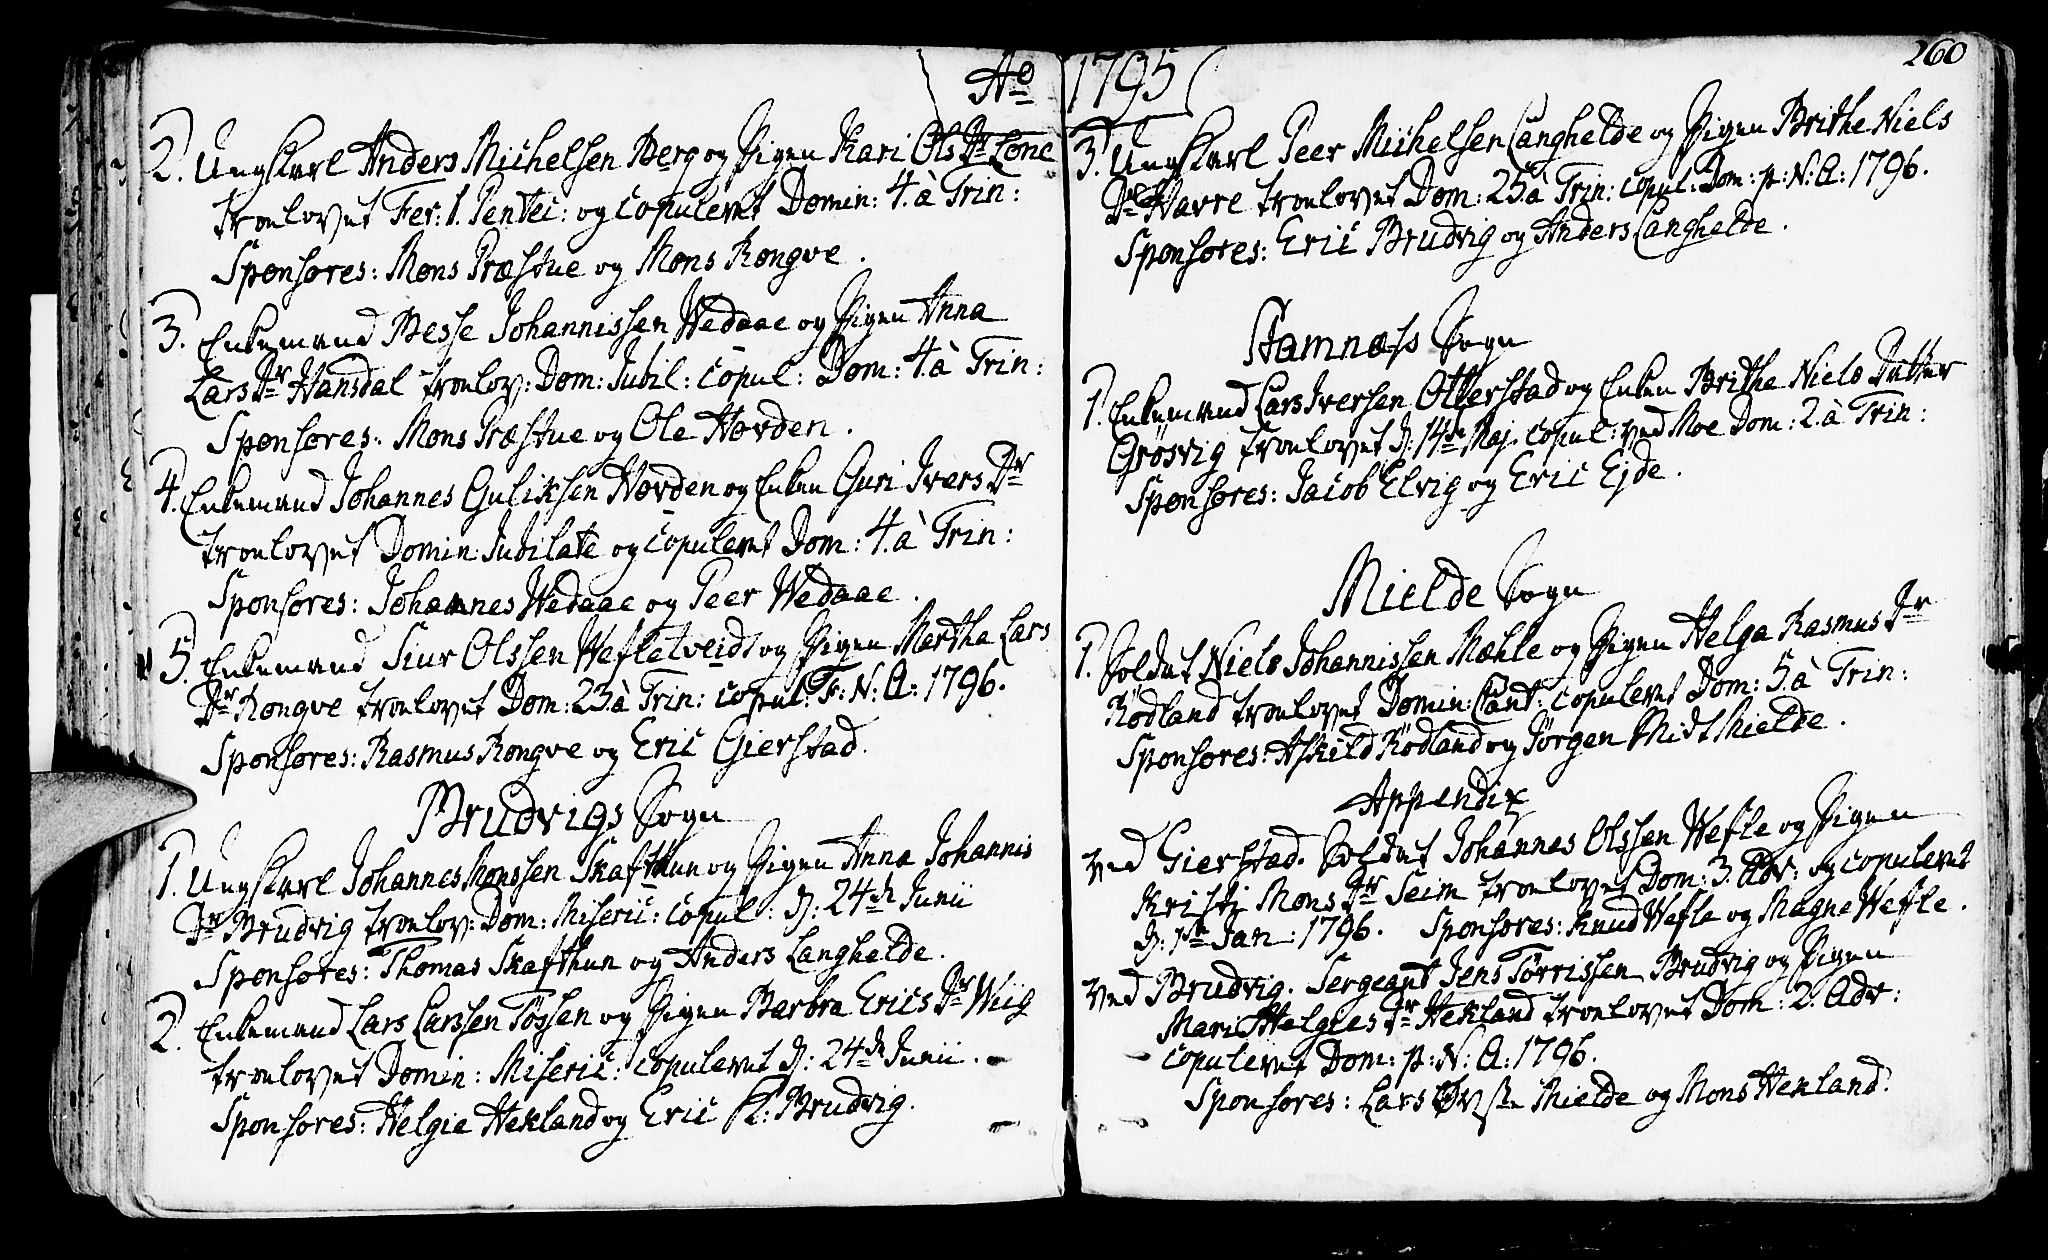 Ao 1795
260
2. Ungkarl Anders Michelsen Berg og Pigen Kari Ols Dr Lone
troelovet Fer: 1. Pentec: og copuleret Domin: 4. à Trin:
Sponsores: Mons Præstue og Mons Rongve.
3. Enkemand Besse Johannissen Wedaae og Pigen Anna
Lars Dr Hansdal troelov: Dom: Jubil: copul: Dom: 4. à Trin:
Sponsores: Mons Præstue og Ole Hovden.
4. Enkemand Johannes Guliksen Hovden og Enken Guri Ivers Dr
troelovet Domin: Jubilate og copuleret Dom: 4. à Trin:
Sponsores: Johannes Wedaae og Peer Wedaae.
5. Enkemand Siur Olssen Wefletveidt og Pigen Martha Lars
Dr Rongve troelovet Dom: 23. à Trin: copul: F: N: A: 1796.
Sponsores: Rasmus Rongve og Eric Gierstad.
Brudvigs Sogn
1. Ungkarl Johannes Monssen Skafthun og Pigen Anna Johannis
Dr Brudvig troelov: Dom: Miseric: copul: D: 24de Junii
Sponsores: Thomas Skafthun og Anders Langhelde.
2. Enkemand Lars Larssen Tøssen og Pigen Barbra Erics Dr Wiig
troelovet Domin: Miseric: copuleret D: 24de Junii.
Sponsores: Helgie Hekland og Eric Kl: Brudvig.
3. Ungkarl Peer Michelsen Langhelde og Pigen Brithe Niels
Dr Havre troelovet Dom: 25. à Trin: copul: Dom: p: N: A: 1796.
Sponsores: Eric Brudvig og Anders Langhelde.
Stamnæss Sogn
1. Enkemand Lars Iversen Otterstad og Enken Brithe Niels Datter
Grøsvig troelovet D: 14de Maj. copul: ved Moe Dom: 2. à Trin:
Sponsores: Jacob Elvig og Eric Ejde.
Mielde Sogn
1. Soldat Niels Johannissen Mæhle og Pigen Helga Rasmus Dr
Rødland troelovet Domin: Cant: copuleret Dom: 5. à Trin:
Sponsores: Askild Rødland og Jørgen Midt Mielde.
Appendix
ved Gierstad. Soldat Johannes Olssen Wefle og Pigen
Kristi Mons Dr Seim troelovet Dom: 3. Adv: og copuleret
D: 1te Jan: 1796. Sponsores: Knud Wefle og Magne Wefle.
ved Brudvig. Sergeant Jens Tørrissen Brudvig og Pigen
Mari Helgies Dr Hekland troelovet Dom: 2. Adv:
copuleret Dom: p: N: A: 1796.
Sponsores: Lars Øvste Mielde og Mons Hekland.